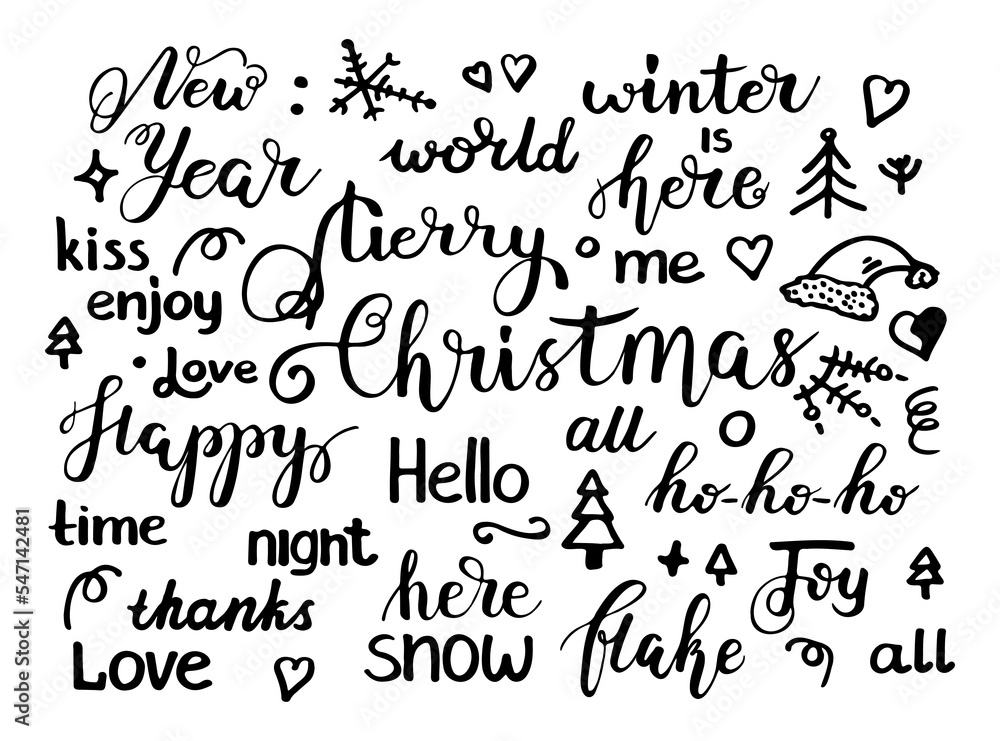 New :
Year
winter
is
here
world
kiss
enjoy
Merry
me
Love
Christmas
Happy
all
Hello
ho-ho-ho
time
night
here
Joy
thanks
Love
snow
flake
all
Adobe Stock | #547142481